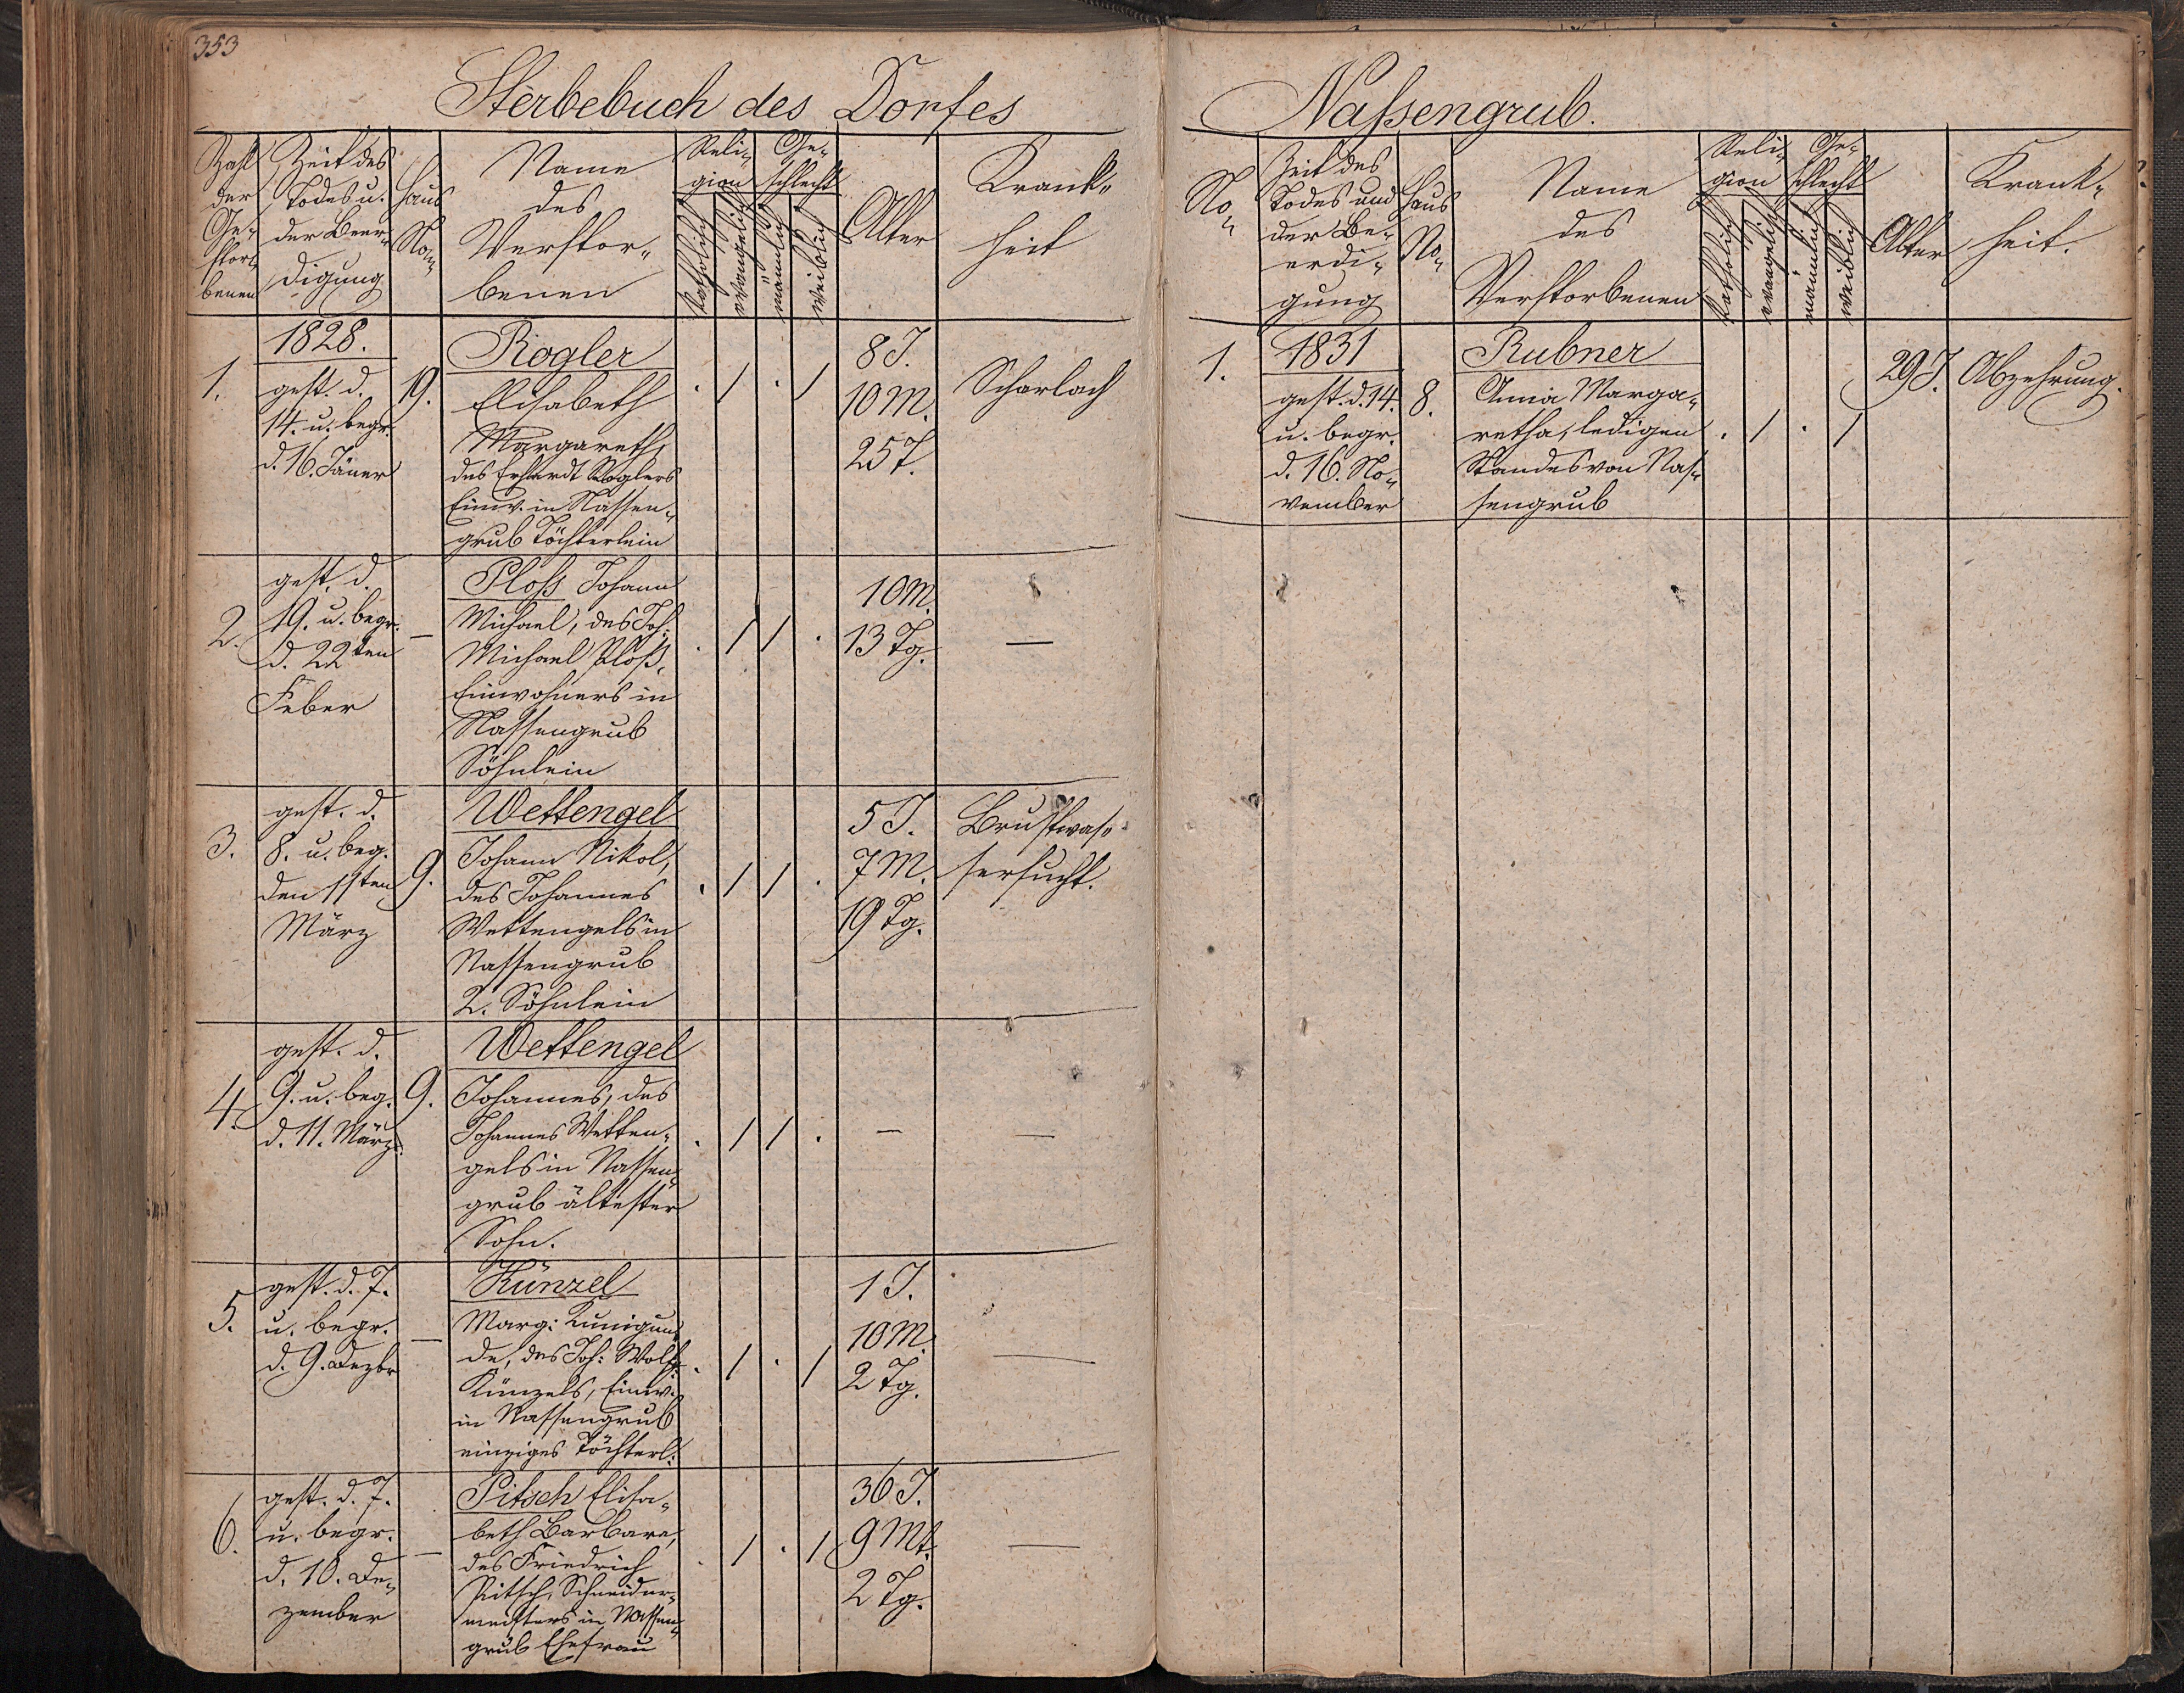 353
Sterbebuch des Dorfes
Zahl der Gestorbenen
Zeit des Todes u. der Beerdigung
Haus No.
Name des Verstorbenen
Religion
katholisch
evangelisch
Geschlecht
männlich
weiblich
Alter
Krankheit
1.
1828.
gest. d.
14. u. begr.
d. 16. Jäner
19.
Rogler
Elisabeth
Margareth,
des Erhardt Roglers
Einw. in Nassen-
grub Töchterlein
. / . /
8 J.
10 M.
25 T.
Scharlach
2.
gest. d.
19. u. begr.
d. 22ten
Feber
—
Ploß Johann
Michael, des Joh:
Michael Ploß,
Einwohners in
Nassengrub
Söhnlein
. / / .
10 M.
13 Tg.
—
3.
gest. d.
8. u. beg.
den 11ten
März
9.
Wettengel
Johann Nikol,
des Johannes
Wettengels in
Nassengrub
2. Söhnlein
. / / .
5 J.
7 M.
19 Tg.
Brustwas-
sersucht.
4.
gest. d.
9. u. beg.
d. 11. März
9.
Wettengel
Johannes, des
Johannes Wetten-
gels in Nassen-
grub ältester
Sohn.
. / / .
—
—
5.
gest. d. 7.
u. begr.
d. 9. Dezbr
—
Künzel
Marg: Kunigun-
de, des Joh: Wolf
Künzels, Einw.
in Nassengrub
einziges Töchterl.
. / . /
1 J.
10 M.
2 Tg.
—
6.
gest. d. 7.
u. begr.
d. 10. De-
zember
—
Pitsch Elisa-
beth Barbara,
des Friedrich
Pitsch, Schneider-
meisters in Nassen-
grub Ehefrau
. / . /
36 J.
9 Mt.
2 Tg.
—
Naßengrub.
No.
Zeit des
Todes und
der Be-
erdi-
gung
Haus
No.
Name
des
Verstorbenen
Reli-
gion
katholisch
evangelisch
Ge-
schlecht
männlich
weiblich
Alter
Krank-
heit.
1.
1831
gest. d. 14.
u. begr.
d. 16. No-
vember
8.
Rubner
Anna Marga-
retha, ledigen
Standes von Nas-
sengrub
. / . /
29 J.
Abzehrung.